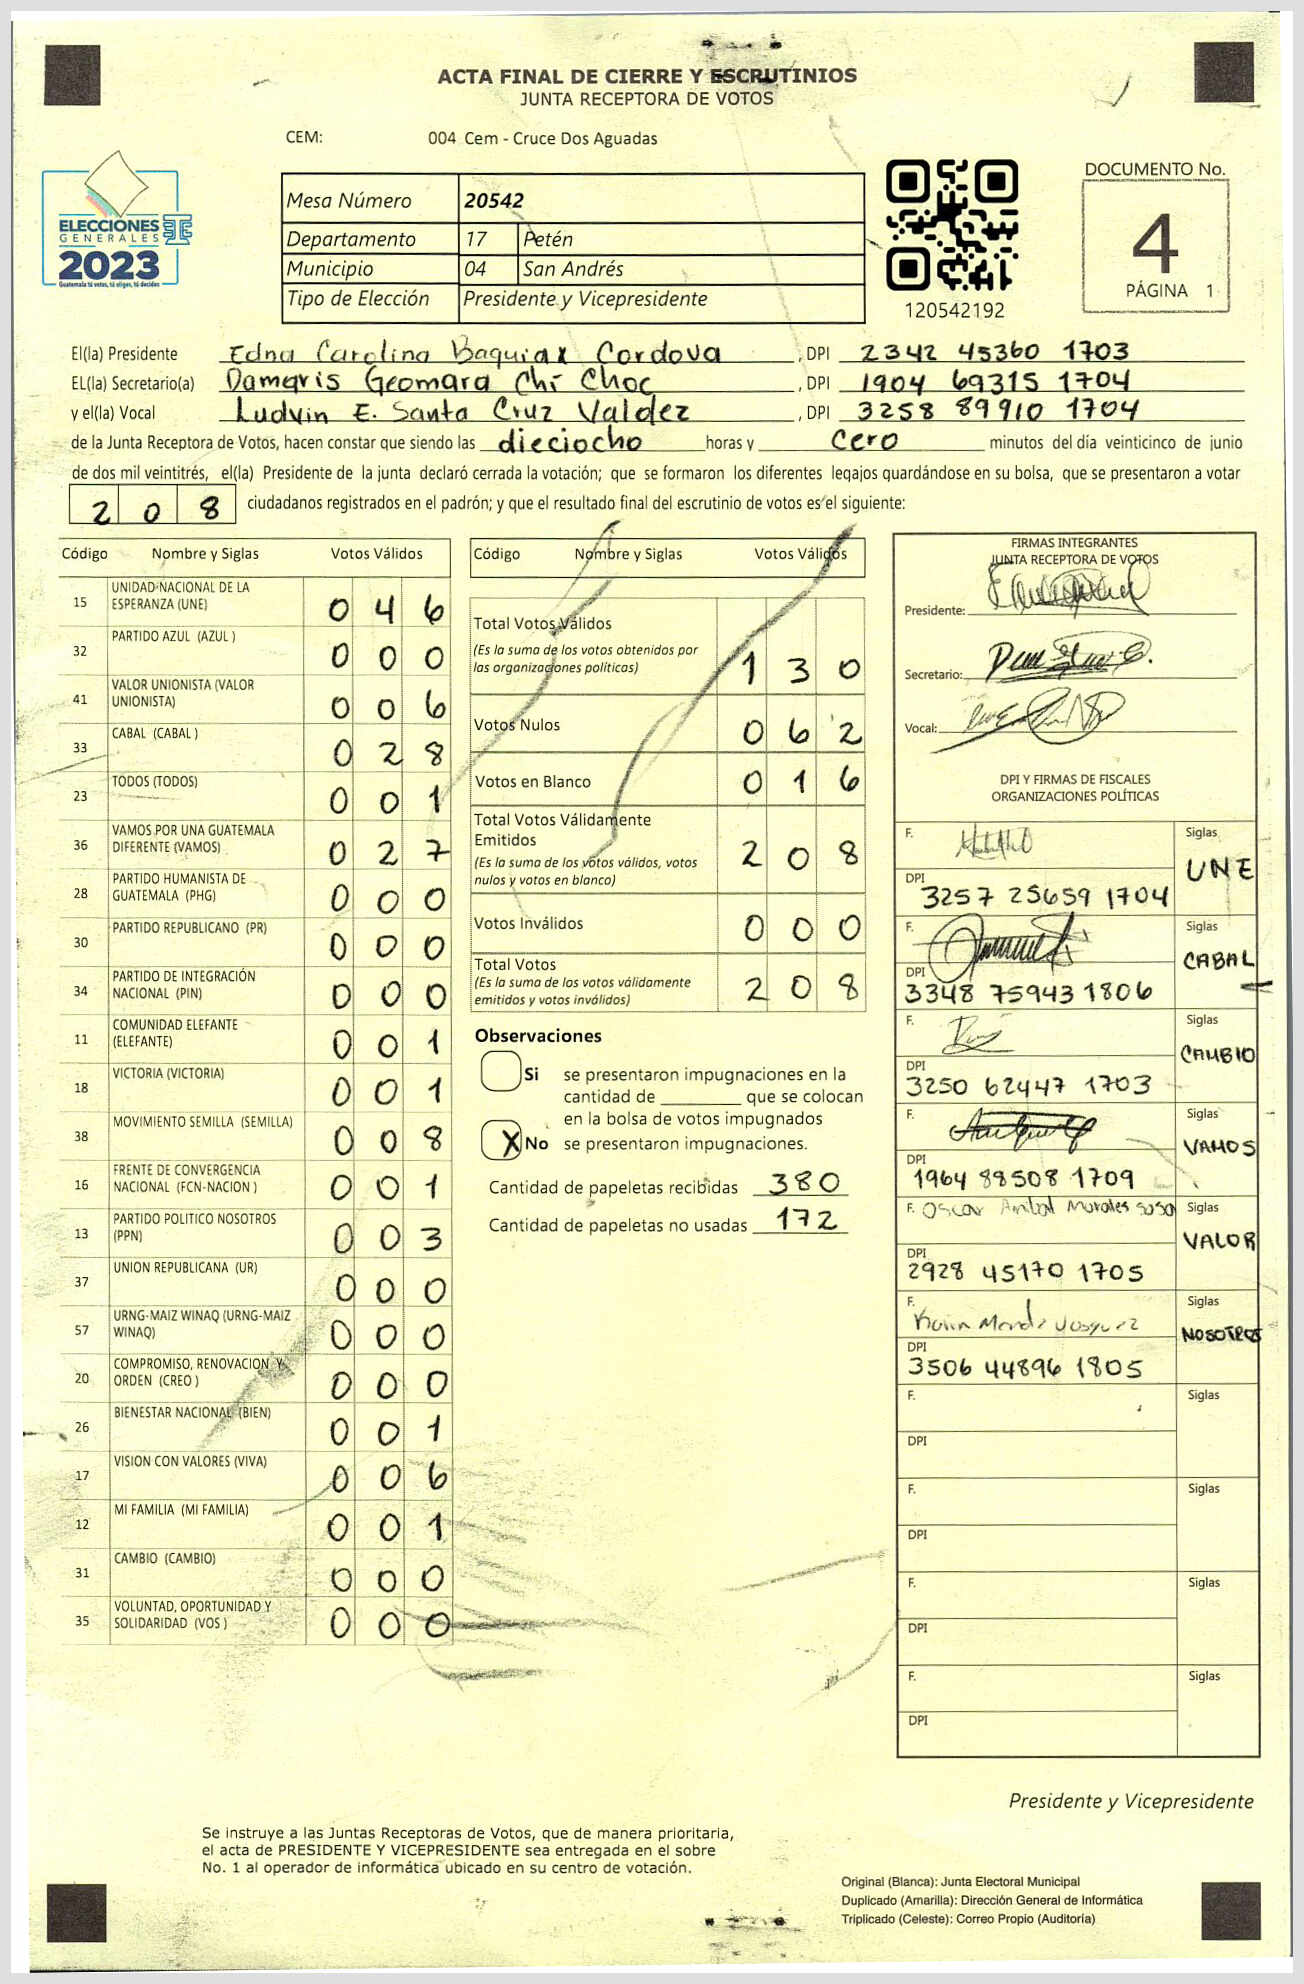 ACTA FINAL DE CIERRE Y ESCRUTINIOS
JUNTA RECEPTORA DE VOTOS
CEM: 004 Cem - Cruce Dos Aguadas
ELECCIONES
GENERALES
2023
Guatemala tú votas, tú eliges, tú decides
Mesa Número 20542
Departamento 17 Petén
Municipio 04 San Andrés
Tipo de Elección Presidente y Vicepresidente
120542192
DOCUMENTO No.
4
PÁGINA 1
El(la) Presidente Edna Carolina Baquiax Cordova , DPI 2342 45360 1703
EL(la) Secretario(a) Damaris Geomara Chí Choc , DPI 1904 69315 1704
y el(la) Vocal Ludvin E. Santa Cruz Valdez , DPI 3258 89910 1704
de la Junta Receptora de Votos, hacen constar que siendo las dieciocho horas y cero minutos del día veinticinco de junio
de dos mil veintitrés, el(la) Presidente de la junta declaró cerrada la votación; que se formaron los diferentes legajos guardándose en su bolsa, que se presentaron a votar
208 ciudadanos registrados en el padrón; y que el resultado final del escrutinio de votos es el siguiente:
Código Nombre y Siglas Votos Válidos
15 UNIDAD NACIONAL DE LA ESPERANZA (UNE) 0 4 6
32 PARTIDO AZUL (AZUL ) 0 0 0
41 VALOR UNIONISTA (VALOR UNIONISTA) 0 0 6
33 CABAL (CABAL ) 0 2 8
23 TODOS (TODOS) 0 0 1
36 VAMOS POR UNA GUATEMALA DIFERENTE (VAMOS) 0 2 7
28 PARTIDO HUMANISTA DE GUATEMALA (PHG) 0 0 0
30 PARTIDO REPUBLICANO (PR) 0 0 0
34 PARTIDO DE INTEGRACIÓN NACIONAL (PIN) 0 0 0
11 COMUNIDAD ELEFANTE (ELEFANTE) 0 0 1
18 VICTORIA (VICTORIA) 0 0 1
38 MOVIMIENTO SEMILLA (SEMILLA) 0 0 8
16 FRENTE DE CONVERGENCIA NACIONAL (FCN-NACION ) 0 0 1
13 PARTIDO POLITICO NOSOTROS (PPN) 0 0 3
37 UNION REPUBLICANA (UR) 0 0 0
57 URNG-MAIZ WINAQ (URNG-MAIZ WINAQ) 0 0 0
20 COMPROMISO, RENOVACION Y ORDEN (CREO ) 0 0 0
26 BIENESTAR NACIONAL (BIEN) 0 0 1
17 VISION CON VALORES (VIVA) 0 0 6
12 MI FAMILIA (MI FAMILIA) 0 0 1
31 CAMBIO (CAMBIO) 0 0 0
35 VOLUNTAD, OPORTUNIDAD Y SOLIDARIDAD (VOS ) 0 0 0
Código Nombre y Siglas Votos Válidos
Total Votos Válidos 1 3 0
(Es la suma de los votos obtenidos por
las organizaciones políticas)
Votos Nulos 0 6 2
Votos en Blanco 0 1 6
Total Votos Válidamente
Emitidos 2 0 8
(Es la suma de los votos válidos, votos
nulos y votos en blanco)
Votos Inválidos 0 0 0
Total Votos 2 0 8
(Es la suma de los votos válidamente
emitidos y votos inválidos)
Observaciones
Si se presentaron impugnaciones en la
cantidad de ________ que se colocan
en la bolsa de votos impugnados
X No se presentaron impugnaciones.
Cantidad de papeletas recibidas 380
Cantidad de papeletas no usadas 172
FIRMAS INTEGRANTES
JUNTA RECEPTORA DE VOTOS
Presidente:
Secretario:
Vocal:
DPI Y FIRMAS DE FISCALES
ORGANIZACIONES POLÍTICAS
F. Siglas UNE
DPI 3257 25659 1704
F. Siglas CABAL
DPI 3348 75943 1806
F. Siglas CAMBIO
DPI 3250 62447 1703
F. Siglas VAMOS
DPI 1964 88508 1709
F. Oscar Anibal Morales sosa Siglas VALOR
DPI 2928 45170 1705
F. Siglas NOSOTROS
DPI 3506 44896 1805
F. Siglas
DPI
F. Siglas
DPI
F. Siglas
DPI
F. Siglas
DPI
Presidente y Vicepresidente
Se instruye a las Juntas Receptoras de Votos, que de manera prioritaria,
el acta de PRESIDENTE Y VICEPRESIDENTE sea entregada en el sobre
No. 1 al operador de informática ubicado en su centro de votación.
Original (Blanca): Junta Electoral Municipal
Duplicado (Amarilla): Dirección General de Informática
Triplicado (Celeste): Correo Propio (Auditoría)